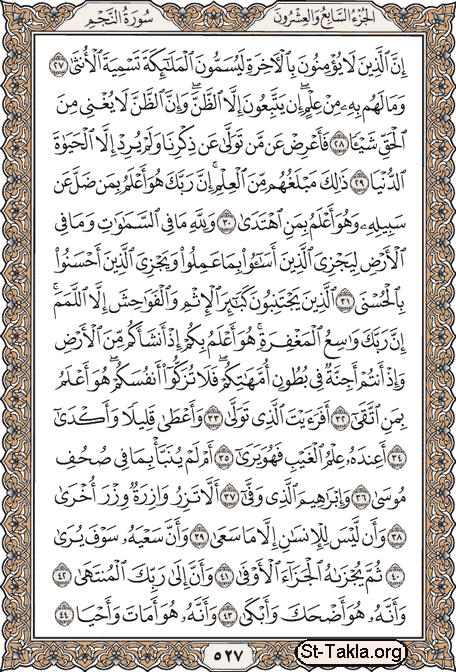 الجزء السابع والعشرون
سورة النجم
إِنَّ ٱلَّذِينَ لَا يُؤْمِنُونَ بِٱلْأَخِرَةِ لَيُسَمُّونَ ٱلْمَلَٰٓئِكَةَ تَسْمِيَةَ ٱلْأُنثَىٰ ٢٧
وَمَا لَهُم بِهِۦ مِنْ عِلْمٍ ۖ إِن يَتَّبِعُونَ إِلَّا ٱلظَّنَّ ۖ وَإِنَّ ٱلظَّنَّ لَا يُغْنِى مِنَ
ٱلْحَقِّ شَيْـًٔا ٢٨ فَأَعْرِضْ عَن مَّن تَوَلَّىٰ عَن ذِكْرِنَا وَلَمْ يُرِدْ إِلَّا ٱلْحَيَوٰةَ
ٱلدُّنْيَا ٢٩ ذَٰلِكَ مَبْلَغُهُم مِّنَ ٱلْعِلْمِ ۚ إِنَّ رَبَّكَ هُوَ أَعْلَمُ بِمَن ضَلَّ عَن
سَبِيلِهِۦ وَهُوَ أَعْلَمُ بِمَنِ ٱهْتَدَىٰ ٣٠ وَلِلَّهِ مَا فِى ٱلسَّمَٰوَٰتِ وَمَا فِى
ٱلْأَرْضِ لِيَجْزِىَ ٱلَّذِينَ أَسَٰٓـُٔوا۟ بِمَا عَمِلُوا۟ وَيَجْزِىَ ٱلَّذِينَ أَحْسَنُوا۟
بِٱلْحُسْنَى ٣١ ٱلَّذِينَ يَجْتَنِبُونَ كَبَٰٓئِرَ ٱلْإِثْمِ وَٱلْفَوَٰحِشَ إِلَّا ٱللَّمَمَ ۚ
إِنَّ رَبَّكَ وَٰسِعُ ٱلْمَغْفِرَةِ ۚ هُوَ أَعْلَمُ بِكُمْ إِذْ أَنشَأَكُم مِّنَ ٱلْأَرْضِ
وَإِذْ أَنتُمْ أَجِنَّةٌ فِى بُطُونِ أُمَّهَٰتِكُمْ ۖ فَلَا تُزَكُّوٓا۟ أَنفُسَكُمْ ۖ هُوَ أَعْلَمُ
بِمَنِ ٱتَّقَىٰٓ ٣٢ أَفَرَءَيْتَ ٱلَّذِى تَوَلَّىٰ ٣٣ وَأَعْطَىٰ قَلِيلًا وَأَكْدَىٰٓ
٣٤ أَعِندَهُۥ عِلْمُ ٱلْغَيْبِ فَهُوَ يَرَىٰٓ ٣٥ أَمْ لَمْ يُنَبَّأْ بِمَا فِى صُحُفِ
مُوسَىٰ ٣٦ وَإِبْرَٰهِيمَ ٱلَّذِى وَفَّىٰٓ ٣٧ أَلَّا تَزِرُ وَازِرَةٌ وِزْرَ أُخْرَىٰ
٣٨ وَأَن لَّيْسَ لِلْإِنسَٰنِ إِلَّا مَا سَعَىٰ ٣٩ وَأَنَّ سَعْيَهُۥ سَوْفَ يُرَىٰ
٤٠ ثُمَّ يُجْزَىٰهُ ٱلْجَزَآءَ ٱلْأَوْفَىٰ ٤١ وَأَنَّ إِلَىٰ رَبِّكَ ٱلْمُنتَهَىٰ ٤٢
وَأَنَّهُۥ هُوَ أَضْحَكَ وَأَبْكَىٰ ٤٣ وَأَنَّهُۥ هُوَ أَمَاتَ وَأَحْيَا ٤٤
٥٢٧
St-Takla.org